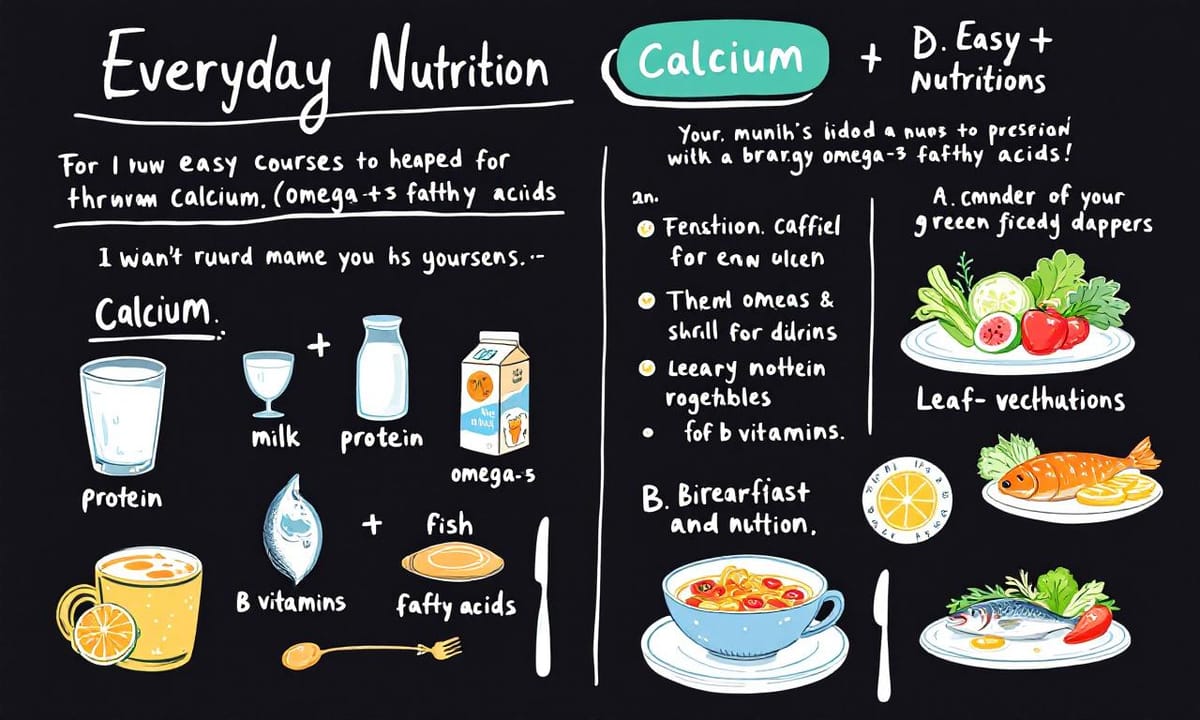 Everyday Nutrition
For I ruw easy courses to heaped for
thruvam calcium. (omega-+s fatthy aciids
I wan't ruurd mame you hs yoursens...-
Calcium.
+
milk
protein
omega-s
protein
+
fish
B vitamins
fafty acids
Calcium
+
D. Easy +
Nutritions
Your. munih's iidod a nups to prespiond
with a brargy omega-3 fafthy acids!
an.
Fenstiion. caffiel
for enn ulcen
Theml omeas &
shrill for dilrins
Leeary nothein
rogethbles
fof b vitamins.
A. cmnder of your
green ficedy dappers
Leaf- vecthutions
B. Birearfiast
and nuttion.